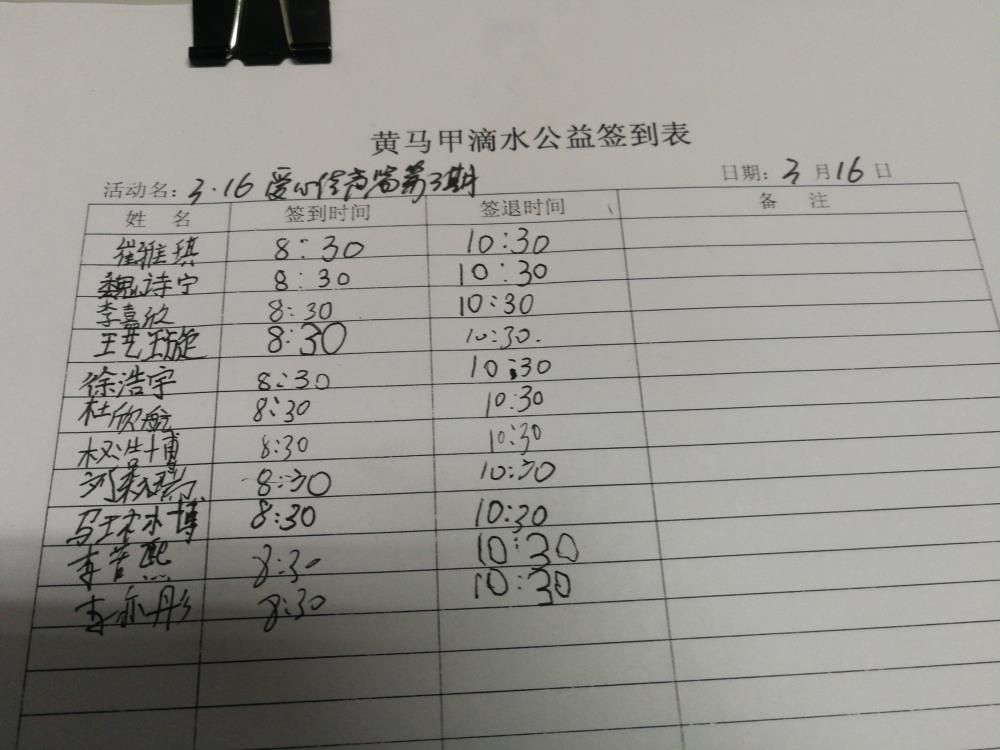 黄马甲滴水公益签到表
活动名: 3.16 爱心传声筒第3期 日期: 3月16日
姓 名 签到时间 签退时间 备 注
崔雅琪 8:30 10:30
魏诗宁 8:30 10:30
李嘉欣 8:30 10:30
王艺璇 8:30 10:30.
徐浩宇 8:30 10:30
杜欣航 8:30 10:30
权浩博 8:30 10:30
8:30 10:30
马 博 8:30 10:30
李 熙 8:30 10:30
李亦彤 8:30 10:30